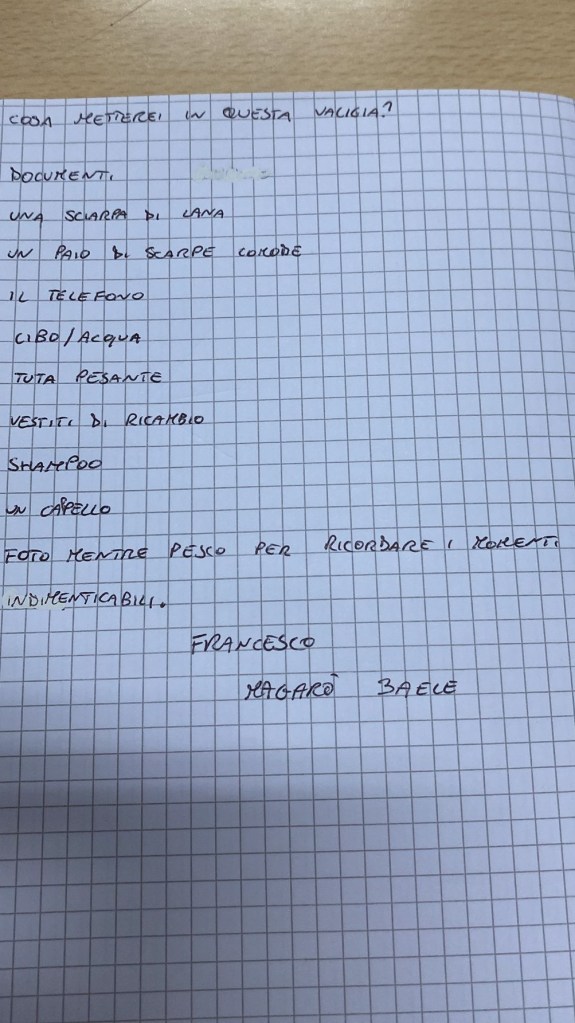 COSA METTEREI IN QUESTA VALIGIA?
DOCUMENTI
UNA SCIARPA DI LANA
UN PAIO DI SCARPE COMODE
IL TELEFONO
CIBO/ACQUA
TUTA PESANTE
VESTITI DI RICAMBIO
SHAMPOO
UN CAPPELLO
FOTO MENTRE PESCO PER RICORDARE I MOMENTI
INDIMENTICABILI.
FRANCESCO
MAGARÒ BAELE